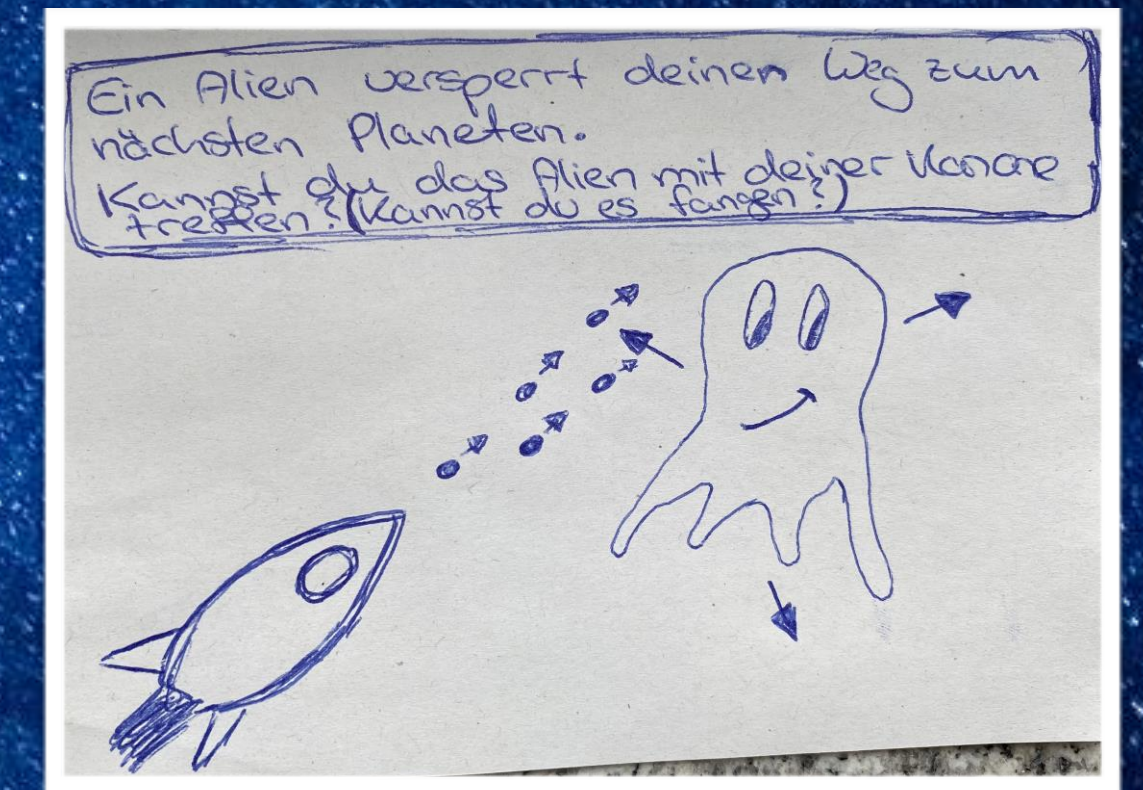 Ein Alien versperrt deinen Weg zum
nächsten Planeten.
Kannst du das Alien mit deiner Kanone
treffen? (Kannst du es fangen?)